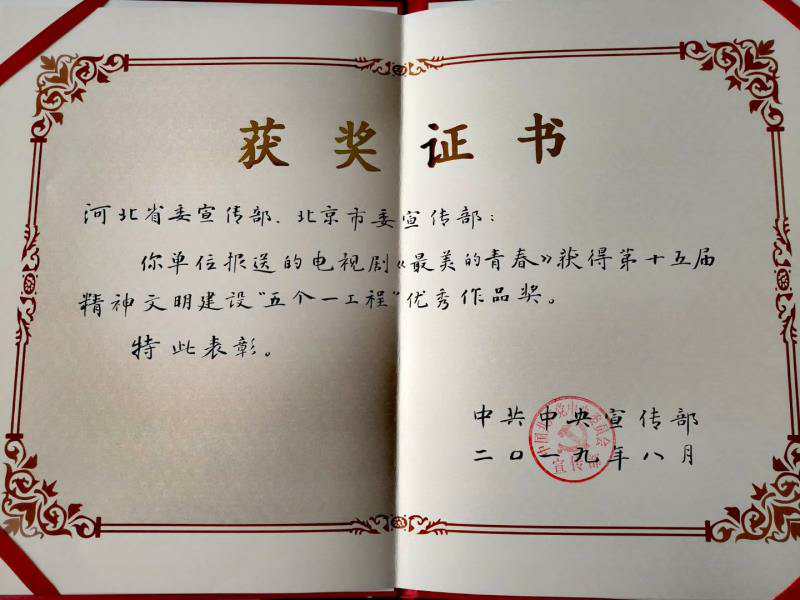 获奖证书
河北省委宣传部、北京市委宣传部：
你单位报送的电视剧《最美的青春》获得第十五届
精神文明建设“五个一工程”优秀作品奖。
特此表彰。
中共中央宣传部
二〇一九年八月
中国共产党中央委员会
宣传部